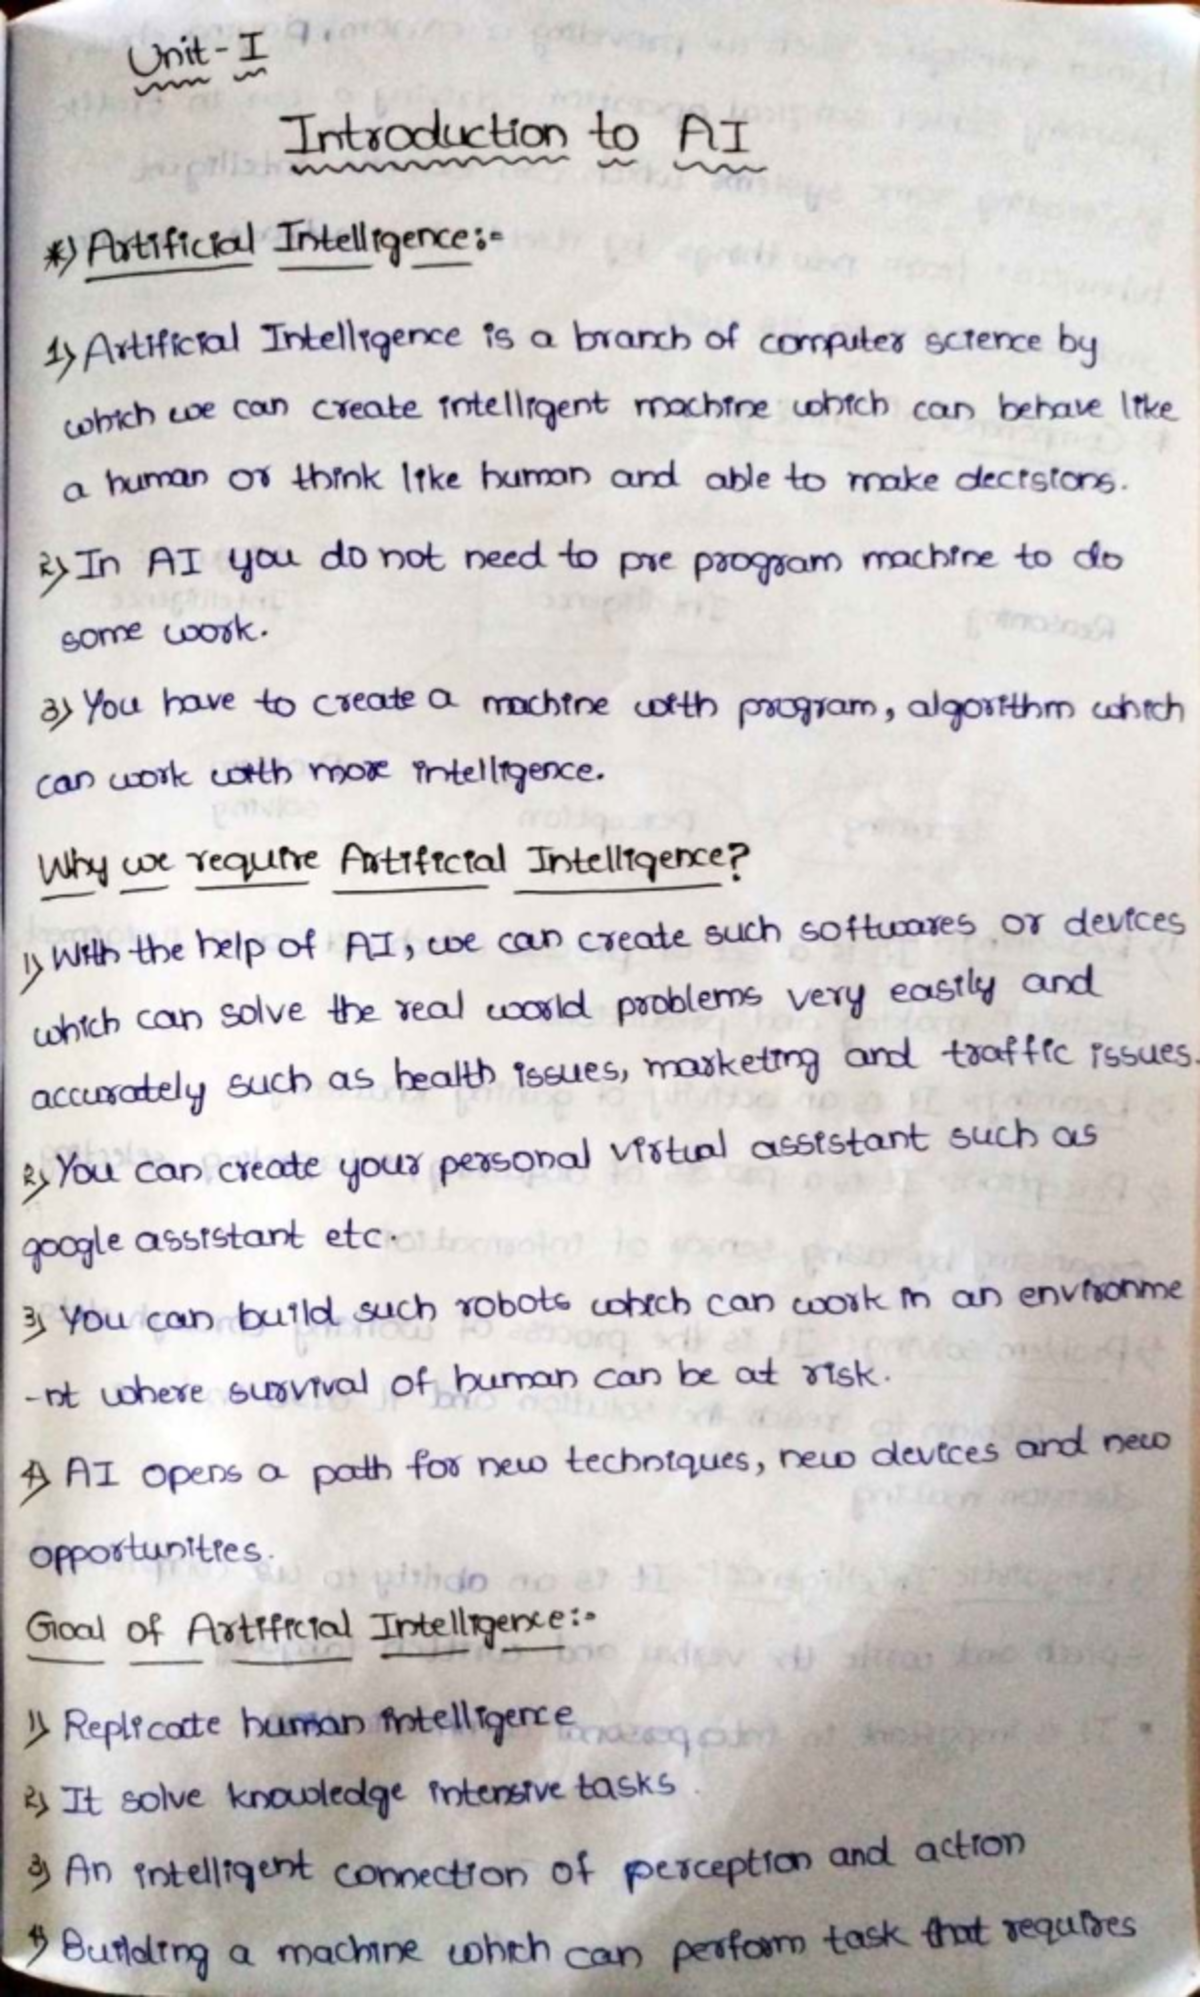 Unit-I
Introduction to AI
*) Artificial Intelligence:-
1) Artificial Intelligence is a branch of computer science by
which we can create intelligent machine which can behave like
a human or think like human and able to make decisions.
2) In AI you do not need to pre program machine to do
some work.
3) You have to create a machine with program, algorithm which
can work with more intelligence.
Why we require Artificial Intelligence?
1) With the help of AI, we can create such softwares or devices
which can solve the real world problems very easily and
accurately such as health issues, marketing and traffic issues.
2) You can create your personal virtual assistant such as
google assistant etc.
3) You can build such robots which can work in an environme
-nt where survival of human can be at risk.
4) AI opens a path for new techniques, new devices and new
opportunities.
Goal of Artificial Intelligence:-
1) Replicate human intelligence
2) It solve knowledge intensive tasks.
3) An intelligent connection of perception and action
4) Building a machine which can perform task that requires